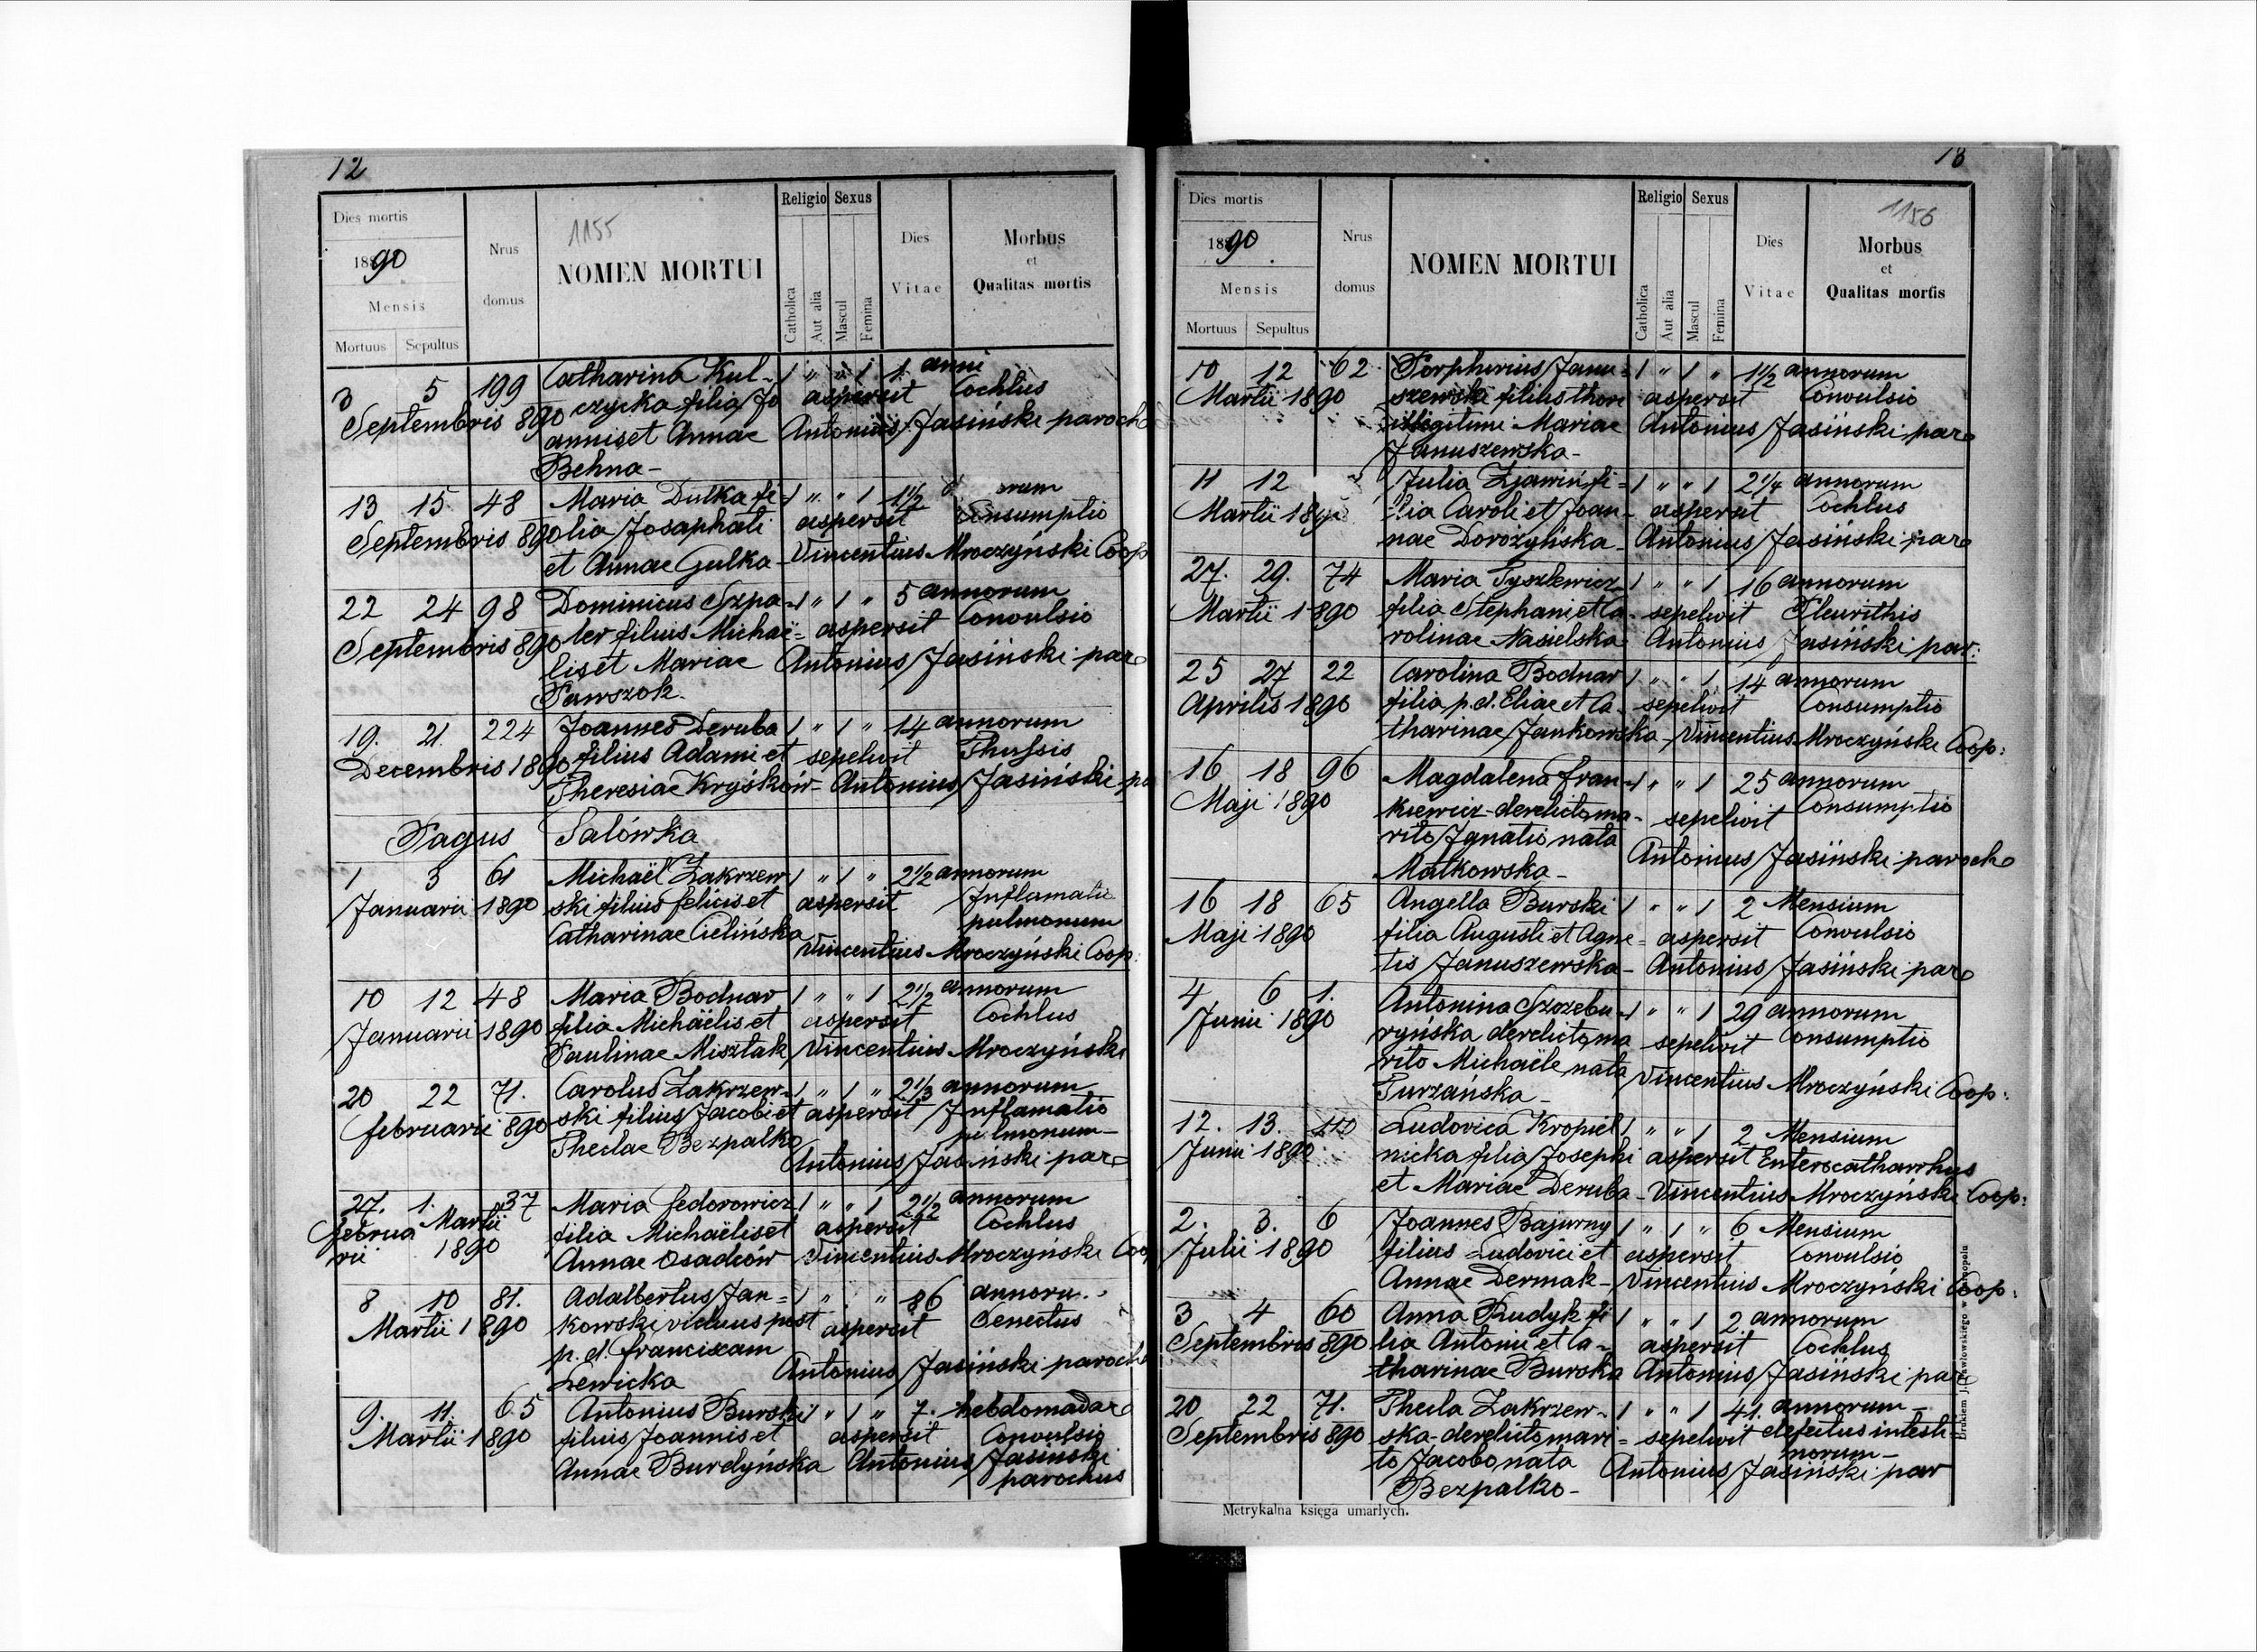 12
Dies mortis
1890
Mensis
Mortuus Sepultus
Nrus domus
1155
NOMEN MORTUI
Religio Sexus
Catholica
Aut alia
Mascul
Femina
Dies Vitae
Morbus
et
Qualitas mortis
3 5 199 Catharina Kul- 1 " " 1 1 anni
czycka filia Jo aspersit Cochlus
Septembris 890
anniset Annae Antonius Jasiński paroch
Behna-
13 15 48 Maria Dulka fi- 1 " " 1 1 1/2
Septembris 890 lia Josaphati aspersit Consumptio
et Annae Gulka- Vincentius Mroczyński Coop
22 24 98 Dominicus Szpa- 1 " 1 " 5 annorum
Septembris 890 ler filius Michaë= aspersit Convulsio
liset Mariae Antonius Jasiński par
Pawszok.
19. 21. 224 Joannes Deruba 1 " 1 " 14 annorum
Decembris 1890 filius Adami et sepelivit Thussis
Theresiae Kryśków- Antonius Jasiński pa
Pagus Salówka
1 3 61 Michaël Zakrzew 1 " 1 " 2 1/2 annorum
Januarii 1890 ski filius felicis et aspersit Inflamatio
pulmonum
Catharinae Cielińska
Vincentius Mroczyński Coop.
10 12 48 Maria Bodnar 1 " " 1 2 1/2 annorum
Januarii 1890 filia Michäelis et aspersit Cochlus
Paulinae Misztak Vincentius Mroczyński
20 22 71. Carolus Zakrzew- 1 " 1 " 2 1/3 annorum
februarii 890 ski filius Jacobi et aspersit Inflamatio
pulmonum-
Theclae Bezpalko
Antonius Jasiński par
27. 1. 37 Maria fedorowicz 1 " " 1 2 1/2 annorum
februa Martii filia Michaëliset aspersit Cochlus
rii 1890 Annae Osadców Vincentius Mroczyński Coo
8 10 81. Adalbertus Jan= 1 " " 86
Martii 1890 kowski viduus post aspersit Senectus
p. d. franciscam
Antonius Jasiński paroch
Lewicka
9. 11. 65 Antonius Burski 1 " 1 " 7. hebdomadar
Martii 1890 filius Joannis et aspersit Convulsio
Annae Burdyńska Antonius Jasiński
parochus
13
Dies mortis
1890.
Mensis
Mortuus Sepultus
Nrus domus
NOMEN MORTUI
Religio Sexus
Catholica
Aut alia
Mascul
Femina
Dies Vitae
1156
Morbus
et
Qualitas mortis
10 12 62 Porphirius Janu= 1 " 1 " 1 1/2 annorum
Martii 1890 szewski filius thori aspersit Convulsio
illegitimi Mariae Antonius Jasiński par
Januszewska-
11 12 Julia Zjawin fi= 1 " " 1 2 1/4 annorum
Martii lia Caroli et Joan- aspersit Cochlus
nae Dorożyńska- Antonius Jasiński par
27. 29. 74 Maria Tyszkewicz 1 " " 1 16 annorum
Martii 1890 filia Stephani et Ca- sepelivit Pleurithis
rolinae Nasielska Antonius Jasiński par:
25 27 22 Carolina Bodnar 1 " " 1 14 annorum
Aprilis 1890 filia p.d. Eliae et Ca- sepelivit Consumptio
tharinae Jankowska- Vincentius Mroczyński Coop:
16 18 96 Magdalena fran- 1 " " 1 25 annorum
Maji 1890 kiewicz-derelicto ma- sepelivit Consumptio
rito Ignatio nata
Antonius Jasiński paroch
Małkowska-
16 18 65 Angella Burski 1 " " 1 2 Mensium
Maji 1890 filia Augusti et Agne= aspersit Convulsio
tis Januszewska- Antonius Jasiński par
4 6 1. Antonina Szozebu- 1 " " 1 29 annorum
Junii 1890 ryńska derelicto ma sepelivit Consumptio
rito Michaële nata Vincentius Mroczyński Coop:
Turzańska-
12. 13. 110 Ludovica Kropiel 1 " " 1 2 Mensium
Junii 1890 nicka filia Josephi aspersit Enterocatharrhus
et Mariae Deruba- Vincentius Mroczyński Coop:
2. 3. 6 Joannes Bajurny 1 " 1 " 6 Mensium
Julii 1890 filius Ludovici et aspersit Convulsio
Annae Dermak- Vincentius Mroczyński Coop:
3 4 60 Anna Rudyk fi 1 " " 1 2 annorum
Septembris 890 lia Antonii et Ca- aspersit Cochlus
tharinae Burska Antonius Jasiński par
20 22 71. Thecla Zakrzew- 1 " " 1 41. annorum-
Septembris 890 ska-derelicto mari- sepelivit defectus intesti
norum-
to Jacobo nata Antonius Jasiński par
Bezpalko-
Metrykalna księga umarłych.
Drukiem J. Pawłowskiego w Tarnopolu